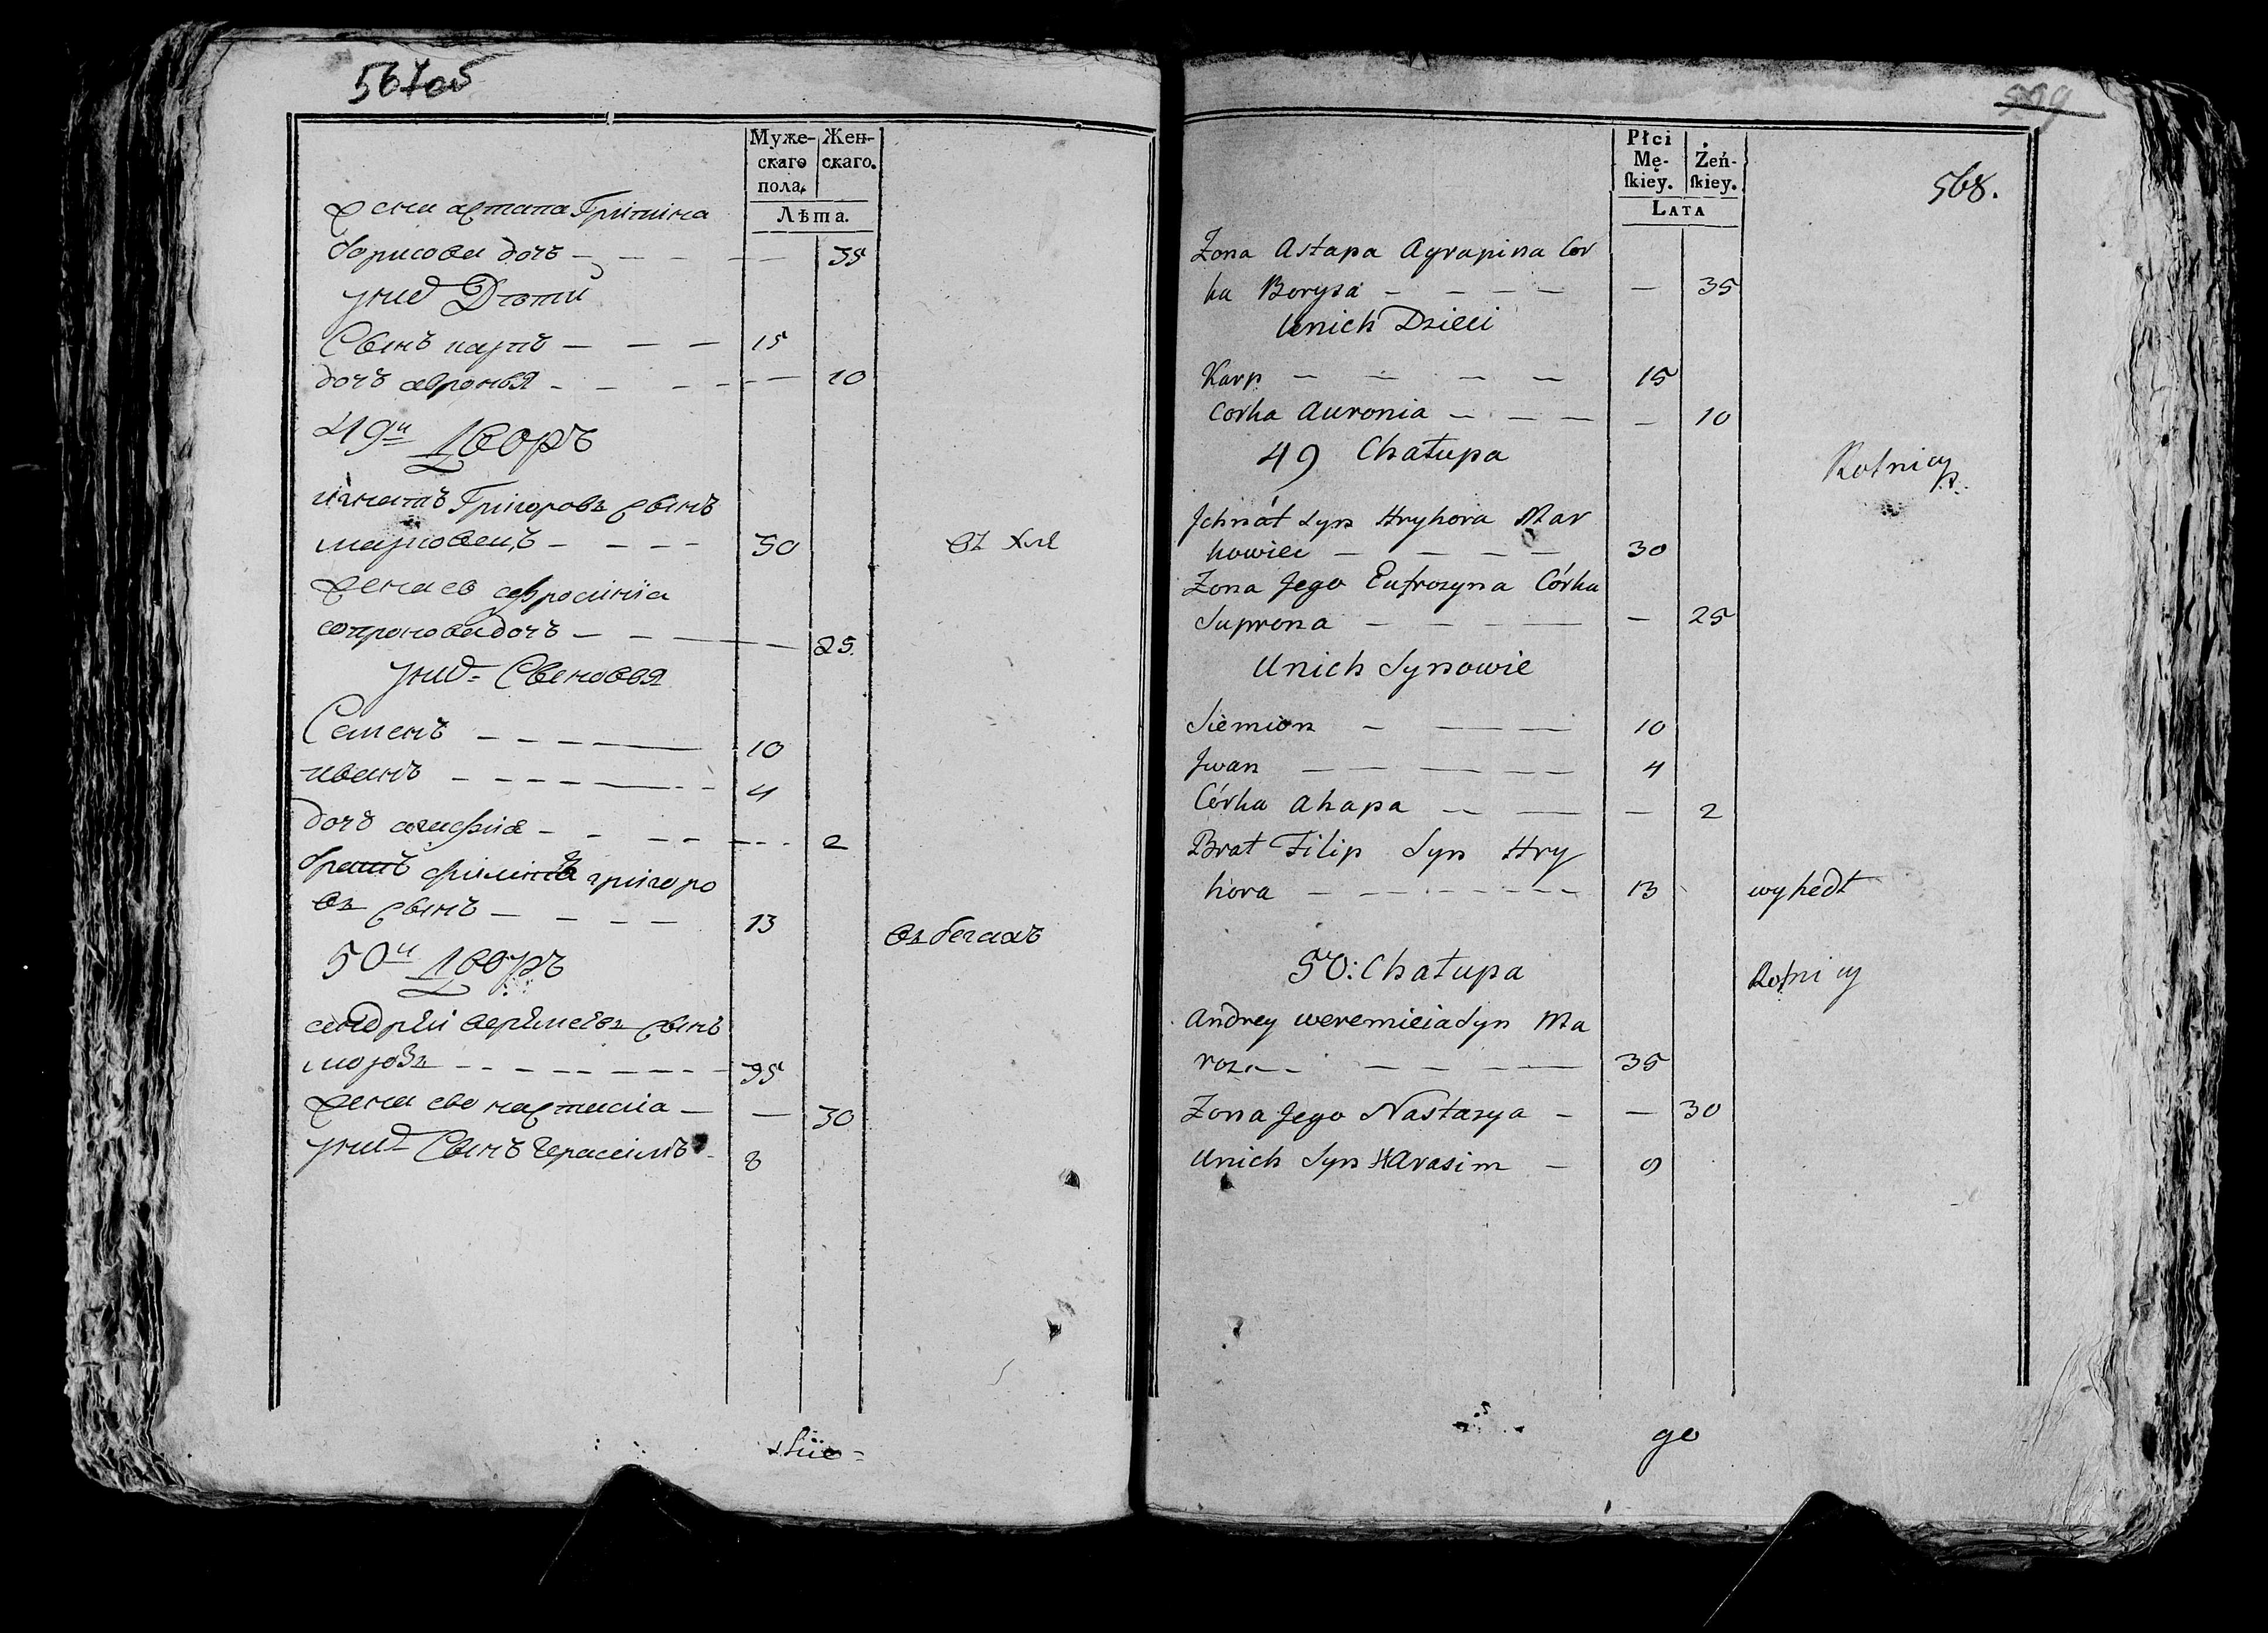 567об
Муже- Жен-
скаго скаго.
пола,
Лѣта.
Жена астапа Грипина
борисова доч - - - - 35
уних Дети
Сынъ карпъ - - - 15
дочь авронья - - - - 10
49й Дворъ
игнатъ Григоровъ сынъ
марковецъ - - - - 30
жена ев афросиния
сопронова доч - - - 25.
уних Сыновья
Семенъ - - - - 10
иванъ - - - - 4
дочъ агафия - - - - 2
братъ филипъ григоро
въ сынъ - - - - 13 въ бегахъ
50й Дворъ
андрѣй верѣмеевъ сынъ
морозъ - - - - 35
жена ево настасия - - 30
уних Сынъ герасимъ - 8
599
568.
Płci
Mę- Żeń-
skiey. skiey.
LATA
Zona Astapa Agrapina Cor
ka Borysa - - - - - 35
Unich Dzieci
Karp - - - - 15
Corka Auronia - - - - 10
49 Chałupa Rolnicy
Jchnát Syn Hryhora Mar
kowiec - - - - 30
Zona Jego Eufrozyna Córka
Suprona - - - - - 25
Unich Synowie
Siemion - - - 10
Jwan - - - - - 4
Córka Ahapa - - - - 2
Brat Filip Syn Hry
hora - - - - - 13 wyszedł
50: Chałupa Rolnicy
Andrey weremieia Syn Ma
roz - - - - 35
Zona Jego Nastazya - - 30
Unich Syn Harasim - 9
go